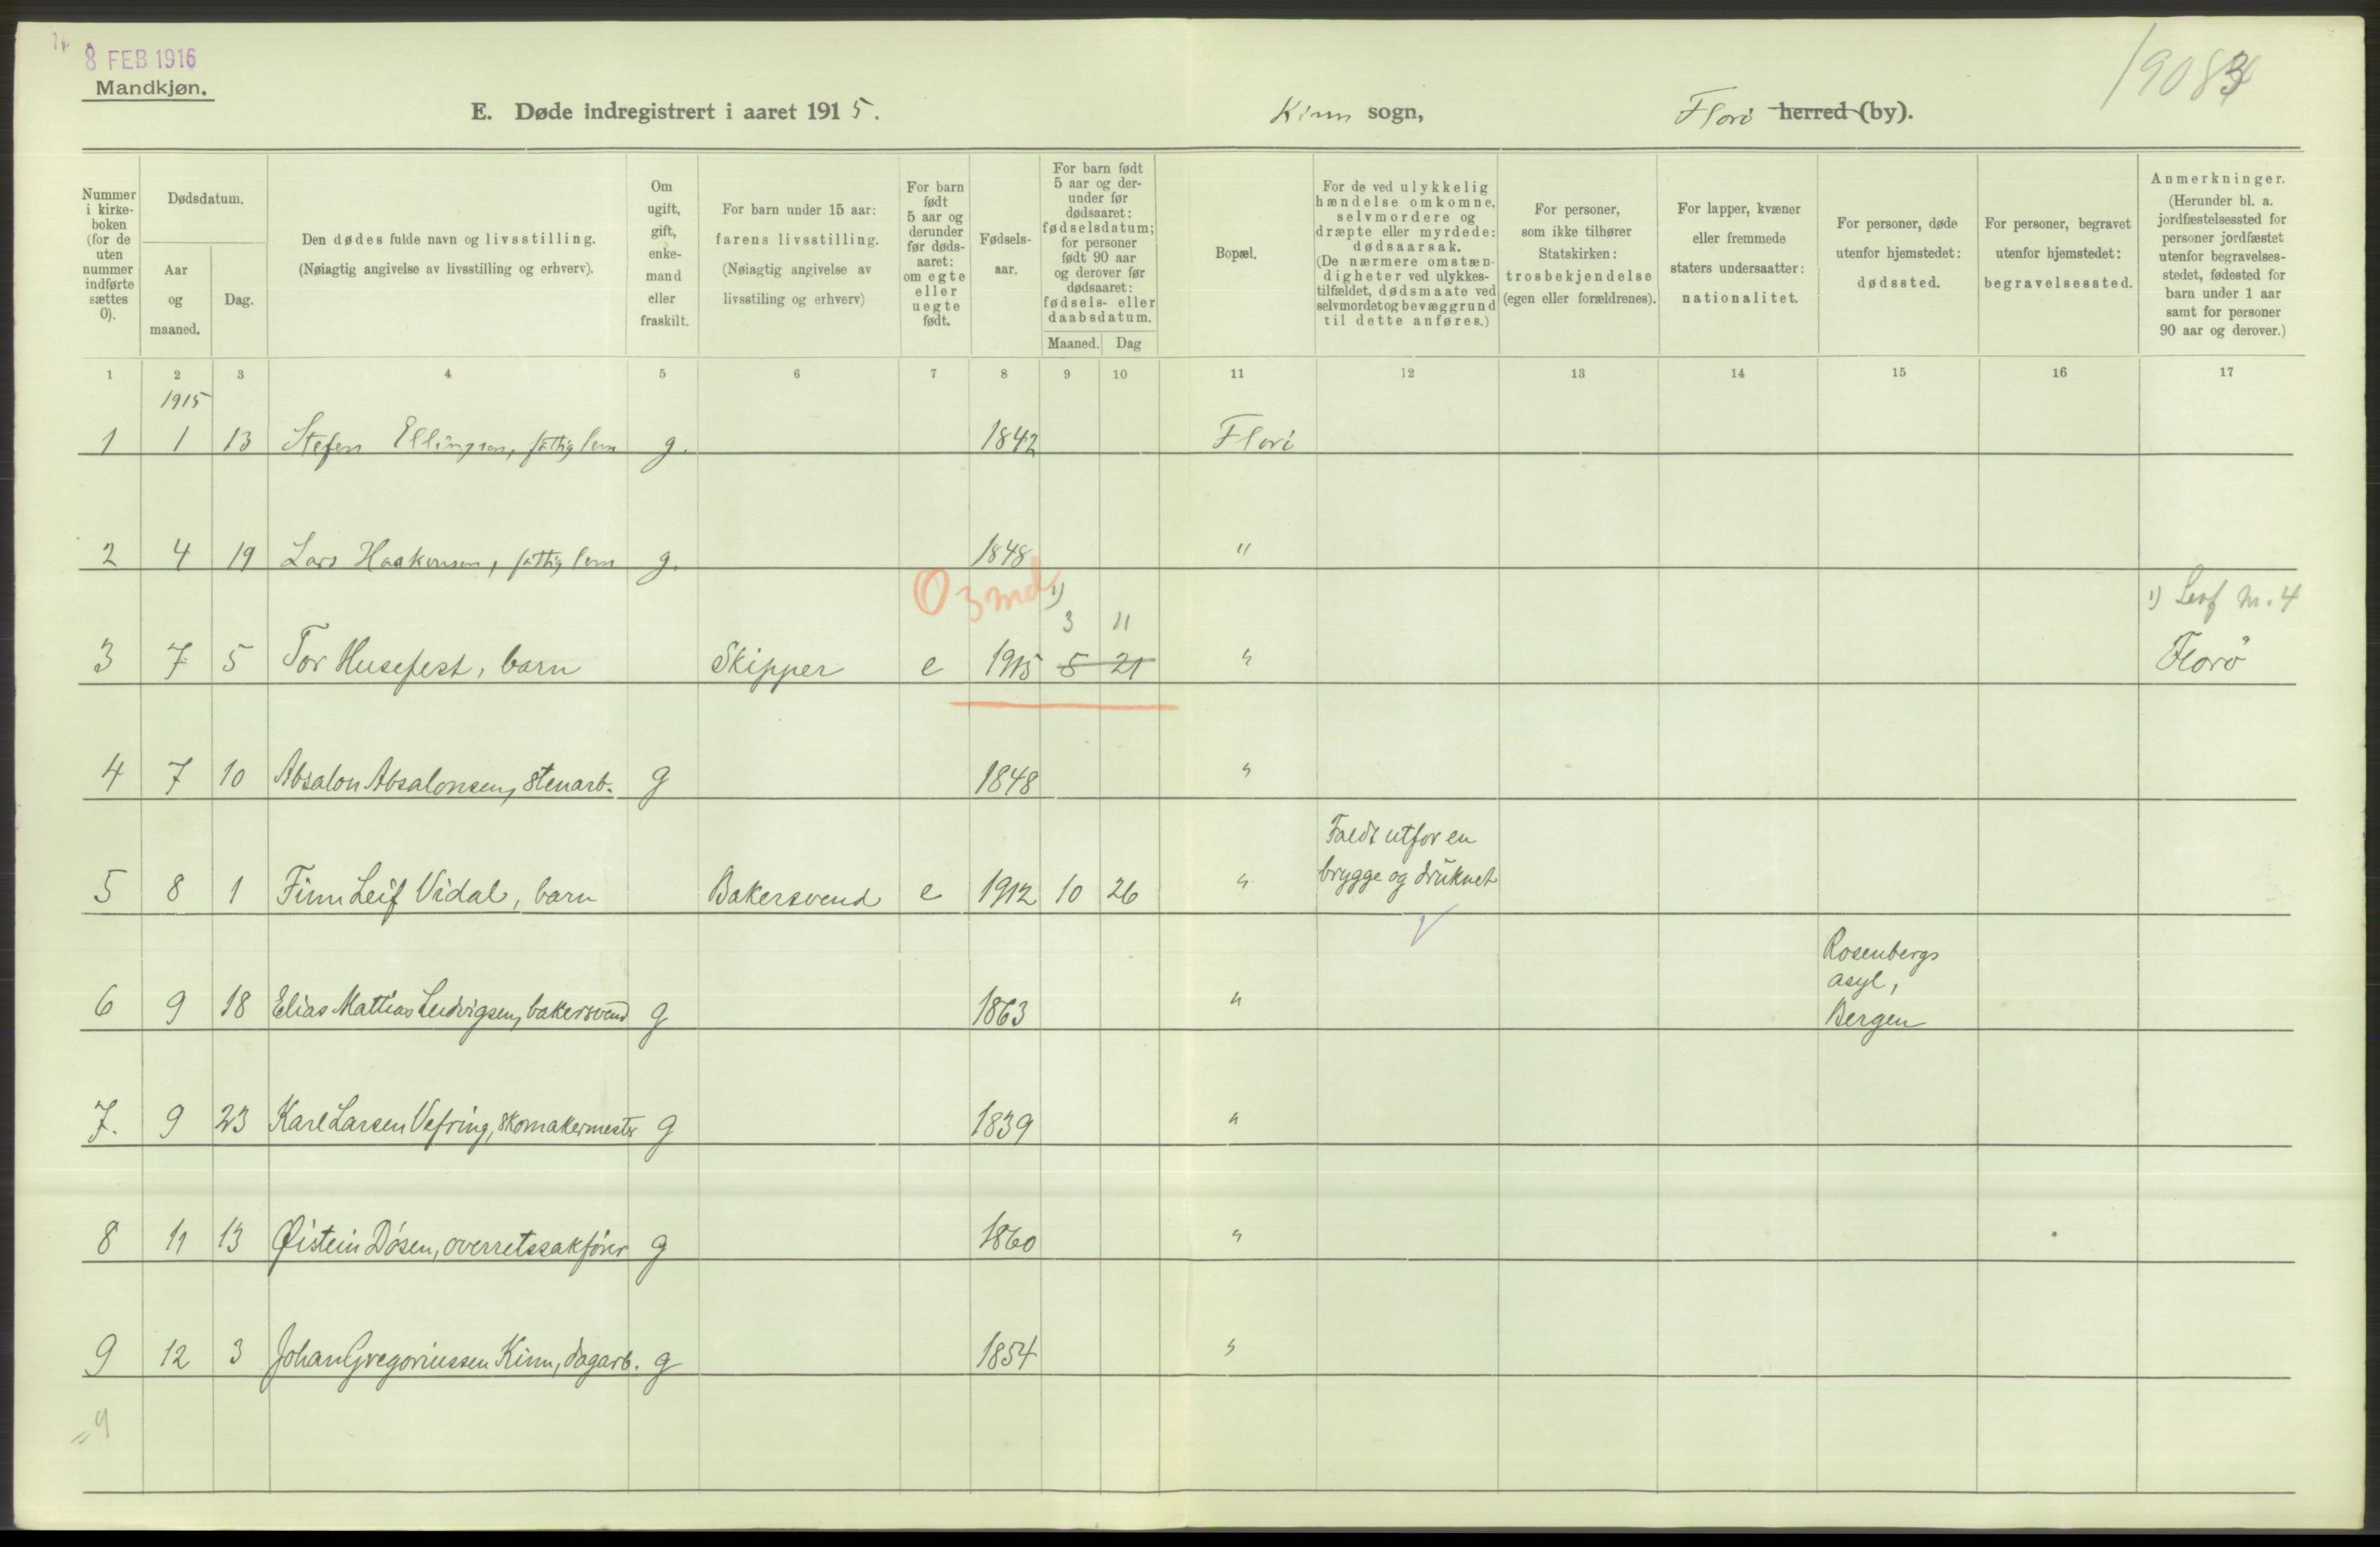 8 FEB 1916
Mandkjøn.
1908
E. Døde indregistrert i aaret 1915.
Kinn sogn,
Florø herred (by).
Nummer i kirkeboken (for de uten nummer indførte sættes 0).
Dødsdatum.
Aar og maaned.
Dag.
Den dødes fulde navn og livsstilling.
(Nøiagtig angivelse av livsstilling og erhverv).
Om ugift, gift, enkemand eller fraskilt.
For barn under 15 aar: farens livsstilling.
(Nøiagtig angivelse av livsstiling og erhverv)
For barn født 5 aar og derunder før dødsaaret: om egte eller uegte født.
Fødselsaar.
For barn født 5 aar og derunder før dødsaaret: fødselsdatum; for personer født 90 aar og derover før dødsaaret: fødsels- eller daabsdatum.
Maaned. Dag
Bopæl.
For de ved ulykkelig hændelse omkomne, selvmordere og dræpte eller myrdede: dødsaarsak.
(De nærmere omstændigheter ved ulykkestilfældet, dødsmaate ved selvmordet og bevæggrund til dette anføres.)
For personer, som ikke tilhører Statskirken: trosbekjendelse (egen eller forældrenes).
For lapper, kvæner eller fremmede staters undersaatter: nationalitet.
For personer, døde utenfor hjemstedet: dødssted.
For personer, begravet utenfor hjemstedet: begravelsessted.
Anmerkninger.
(Herunder bl. a. jordfæstelsessted for personer jordfæstet utenfor begravelsesstedet, fødested for barn under 1 aar samt for personer 90 aar og derover.)
1 2 3 4 5 6 7 8 9 10 11 12 13 14 15 16 17
1915
1 1 13 Stefen Ellingsen, fattiglem g. 1842 Florø
2 4 19 Lars Haakonsen, fattiglem g. 1848 "
0 3 md 1)
3 11
1) m. 4
3 7 5 Tor Husefest, barn Skipper e 1915 5 21 " Florø
4 7 10 Absalon Absalonsen, stenarb. g 1848 "
Faldt utfor en
brygge og druknet
5 8 1 Finn Leif Vidal, barn Bakersvend e 1912 10 26 "
Rosenbergs
asyl,
Bergen
6 9 18 Elias Mattias Ludvigsen, bakersvend g 1863 "
7. 9 23 Karl Larsen Vefring, skomakermester g 1839 "
8 11 13 Øistein Døsen, overretssakfører g 1860 "
9 12 3 Johan Gregoriussen Kinn, dagarb. g 1854 "
9